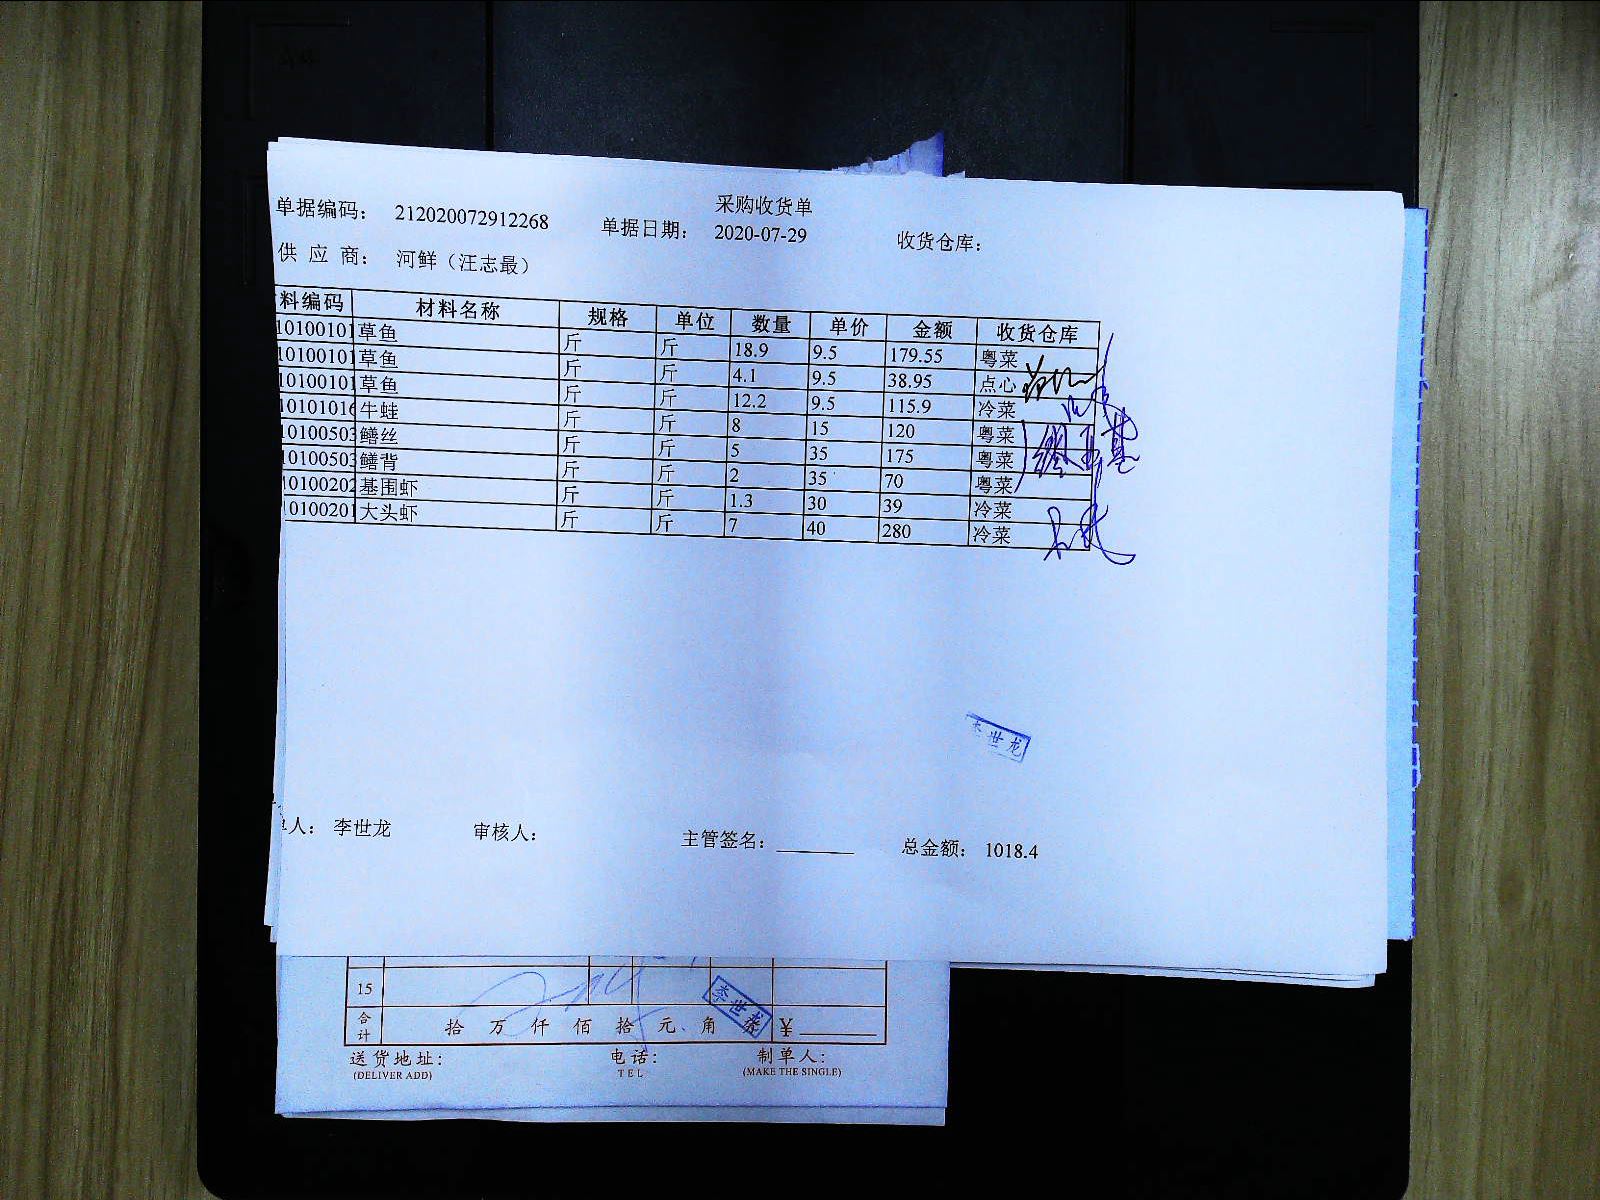 采购收货单
单据编码： 212020072912268 单据日期： 2020-07-29 收货仓库：
供 应 商： 河鲜（汪志最）
料编码 材料名称 规格 单位 数量 单价 金额 收货仓库
10100101 草鱼 斤 斤 18.9 9.5 179.55 粤菜
10100101 草鱼 斤 斤 4.1 9.5 38.95 点心
10100101 草鱼 斤 斤 12.2 9.5 115.9 冷菜
10101016 牛蛙 斤 斤 8 15 120 粤菜
10100503 鳝丝 斤 斤 5 35 175 粤菜
10100503 鳝背 斤 斤 2 35 70 粤菜
10100202 基围虾 斤 斤 1.3 30 39 冷菜
10100201 大头虾 斤 斤 7 40 280 冷菜
李世龙
单人： 李世龙 审核人： 主管签名： 总金额： 1018.4
15
李世龙
合计 拾 万 仟 佰 拾 元 角 ¥
送货地址： 电话： 制单人：
(DELIVER ADD) TEL (MAKE THE SINGLE)